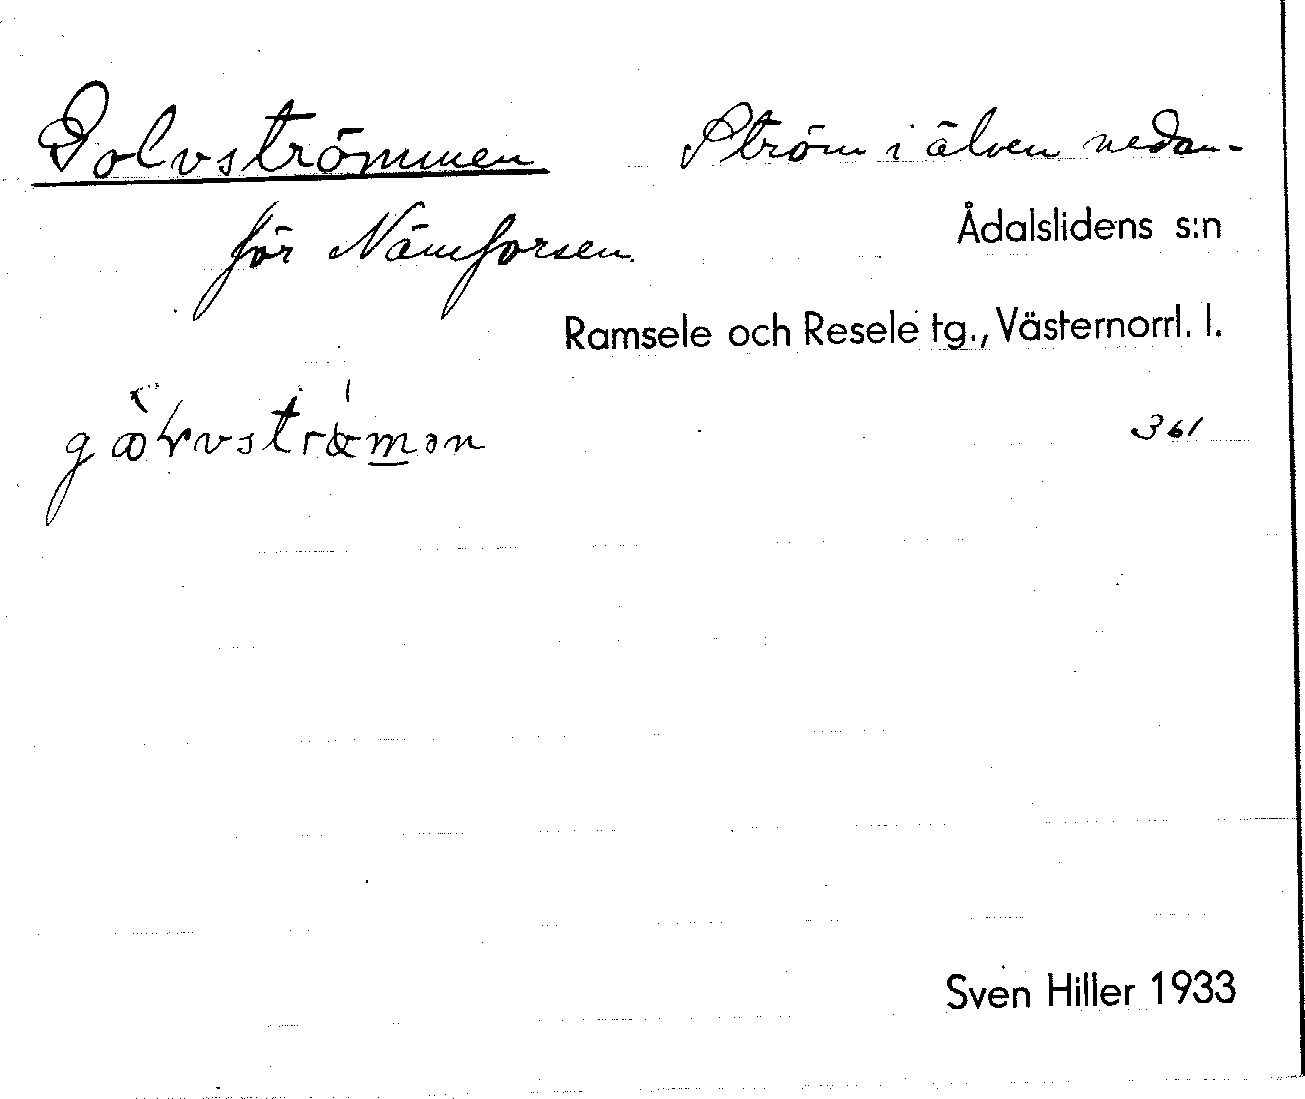 Golvströmmen Ström i älven nedan-
för Nämforsen. Ådalslidens s:n
Ramsele och Resele tg., Västernorrl. l.
361
Sven Hiller 1933